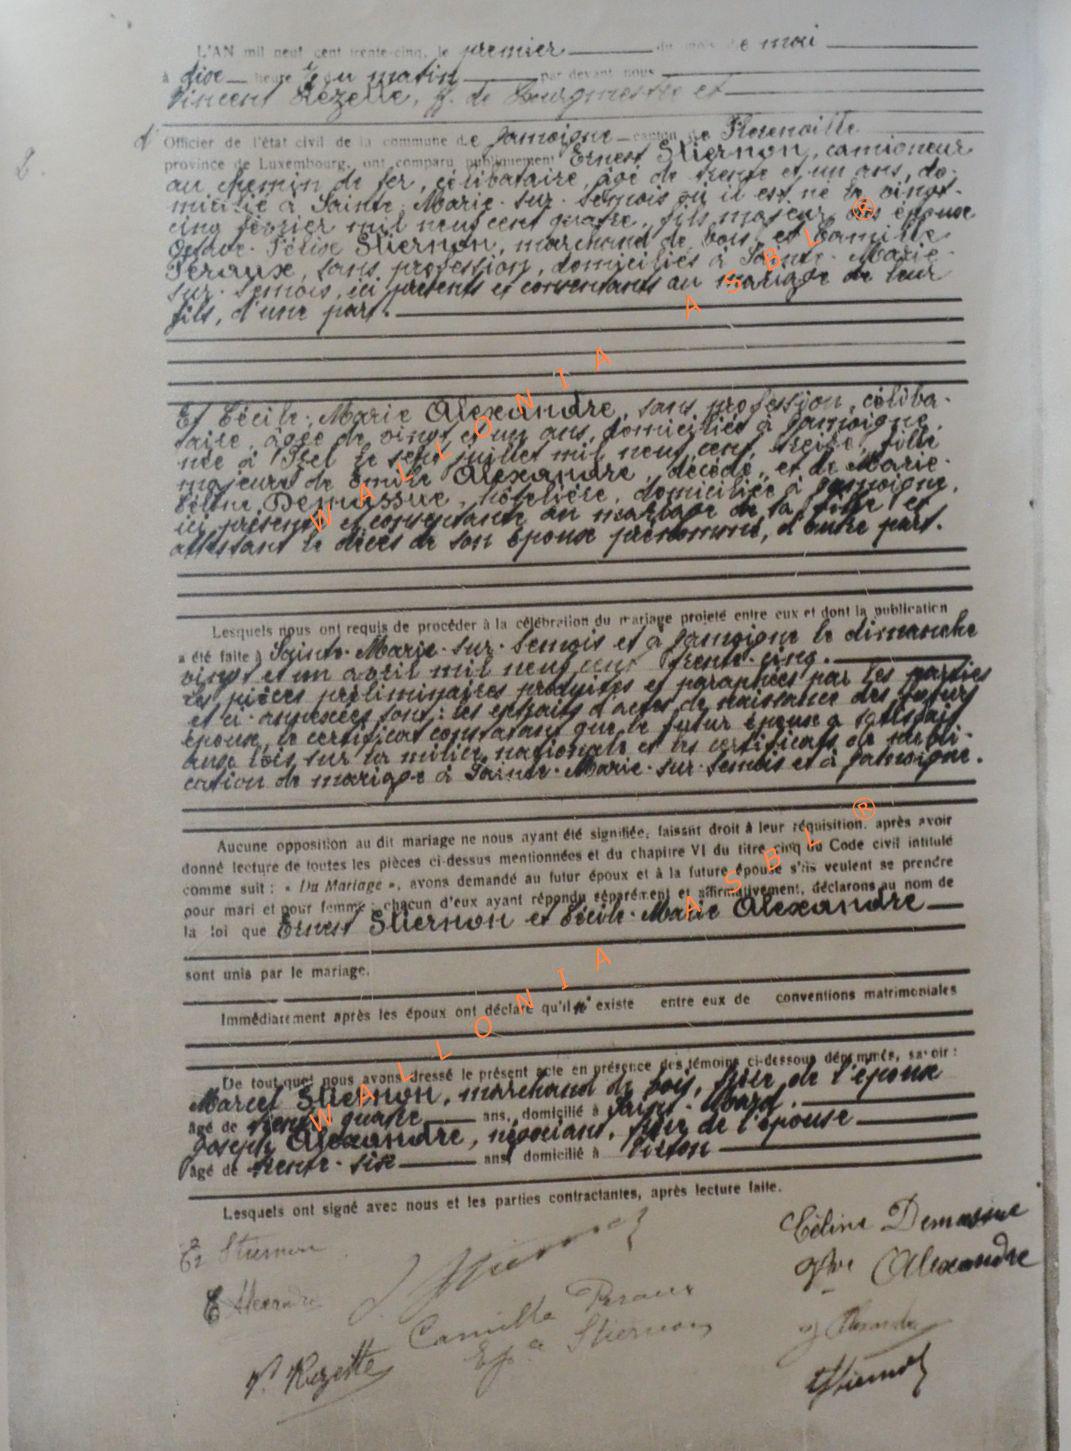 L'AN mil neuf cent trente-cinq, le premier du mois de mai
à dix heure ½ du matin par devant nous
Vincent Rezette, ff. de Bourgmestre et
d' Officier de l'état civil de la commune de Jamoigne canton de Florenville
province de Luxembourg, ont comparu publiquement Ernest Stiernon, camioneur
au chemin de fer, célibataire, âgé de trente et un ans, do-
micilié à Sainte-Marie-sur-Semois où il est né le vingt-
cinq février mil neuf cent quatre, fils majeur des époux
Stiernon, marchand de bois, et Camille
Peraux, sans profession, domiciliés à Sainte-Marie-
sur-Semois, ici présents et consentants au mariage de leur
fils, d'une part.
Et Cécile-Marie Alexandre, sans profession, céliba-
taire, âgée de vingt et un ans, domiciliée à Jamoigne,
née à Izel le sept juillet mil neuf cent treize, fille
majeure de Emile Alexandre, décédé, et de Marie-
Céline Demassue, hôtelière, domiciliée à Jamoigne,
ici présente et consentante au mariage de sa fille et
attestant le décès de son époux prénommé, d'autre part.
Lesquels nous ont requis de procéder à la célébration du mariage projeté entre eux et dont la publication
a été faite à Sainte-Marie-sur-Semois et à Jamoigne le dimanche
vingt et un avril mil neuf cent trente-cinq.
Les pièces préliminaires produites et paraphées par les parties
et ci-annexées sont: les extraits d'actes de naissance des futurs
époux, le certificat constatant que le futur époux a satisfait
aux lois sur la milice nationale et les certificats de publi-
cation de mariage à Sainte-Marie-sur-Semois et à Jamoigne.
Aucune opposition au dit mariage ne nous ayant été signifiée, faisant droit à leur réquisition, après avoir
donné lecture de toutes les pièces ci-dessus mentionnées et du chapitre VI du titre cinq du Code civil intitulé
comme suit : « Du Mariage », avons demandé au futur époux et à la future épouse s'ils veulent se prendre
pour mari et pour femme : chacun d'eux ayant répondu séparément et affirmativement, déclarons au nom de
la loi que Ernest Stiernon et Cécile-Marie Alexandre
sont unis par le mariage.
Immédiatement après les époux ont déclaré qu'il n' existe entre eux de conventions matrimoniales
De tout quoi nous avons dressé le présent acte en présence des témoins ci-dessous dénommés, savoir :
Marcel Stiernon, marchand de bois, frère de l'époux
âgé de trente-quatre ans, domicilié à Saint-Mard.
Joseph Alexandre, négociant, frère de l'épouse
âgé de trente-six ans, domicilié à Virton
Lesquels ont signé avec nous et les parties contractantes, après lecture faite.
Céline Demassue
E Stiernon
Vve Alexandre
E Alexandre
Camille Peraux
Epse Stiernon
J Alexandre
V. Rezette
Stiernon
WALLONIA ASBL ®
WALLONIA ASBL ®